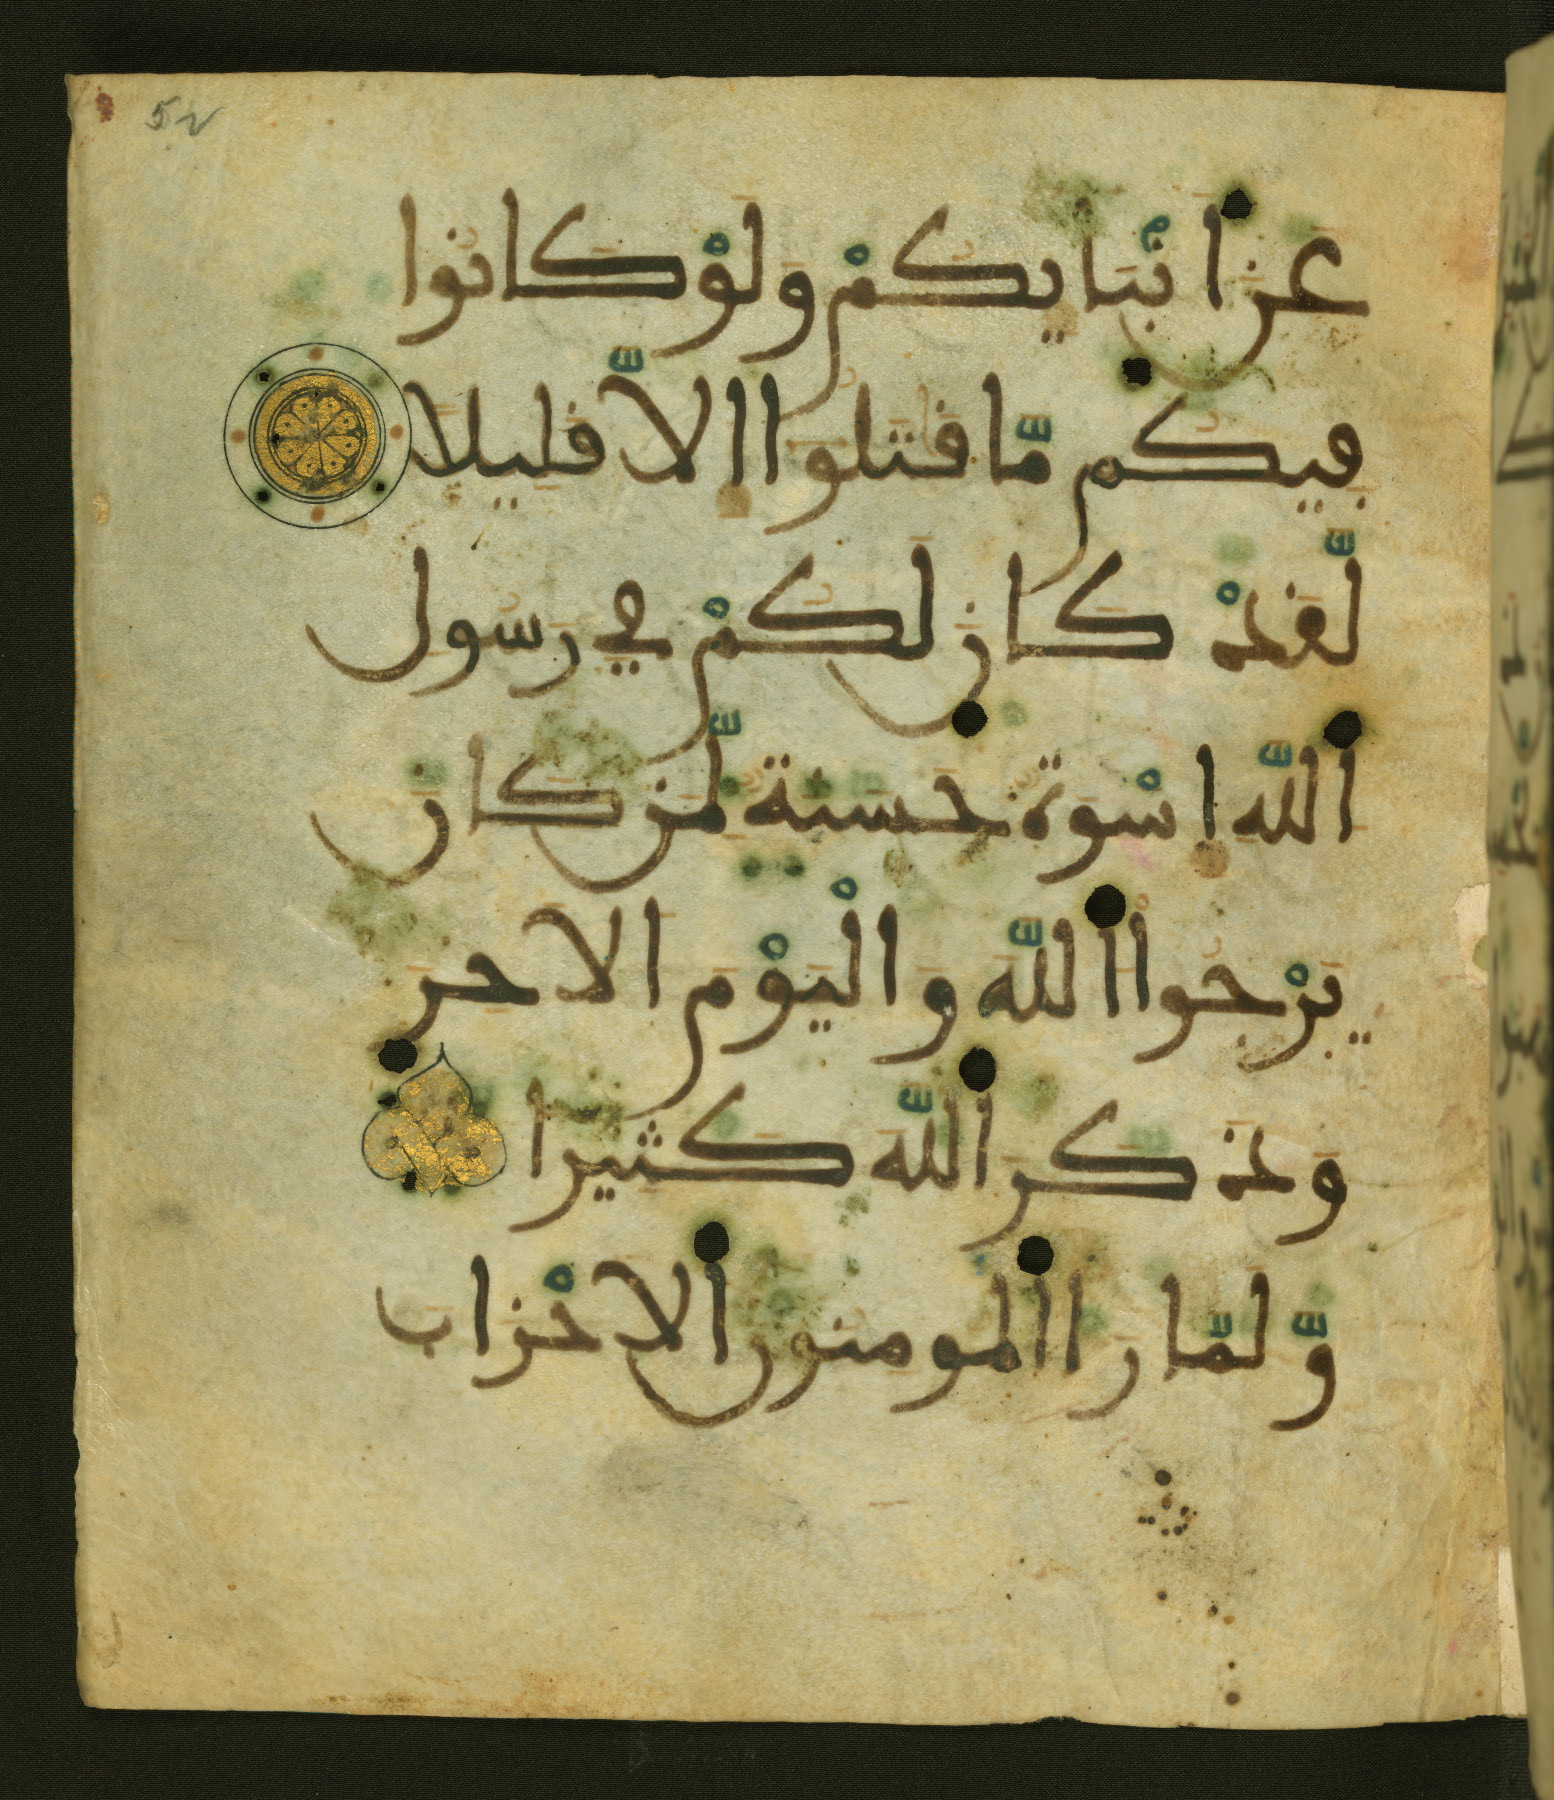 52
عن انۢبايكمْ ولوْ كانوا
فيكم مّا قتلوا الا قليلا
لّقدْ كان لكمْ في رسول
اللّه اسْوة حسنة لّمن كان
يرْجوا اللّه والْيوْم الاخر
وذكر اللّه كثيرا
وّلمّا را المومنون الاحْزاب